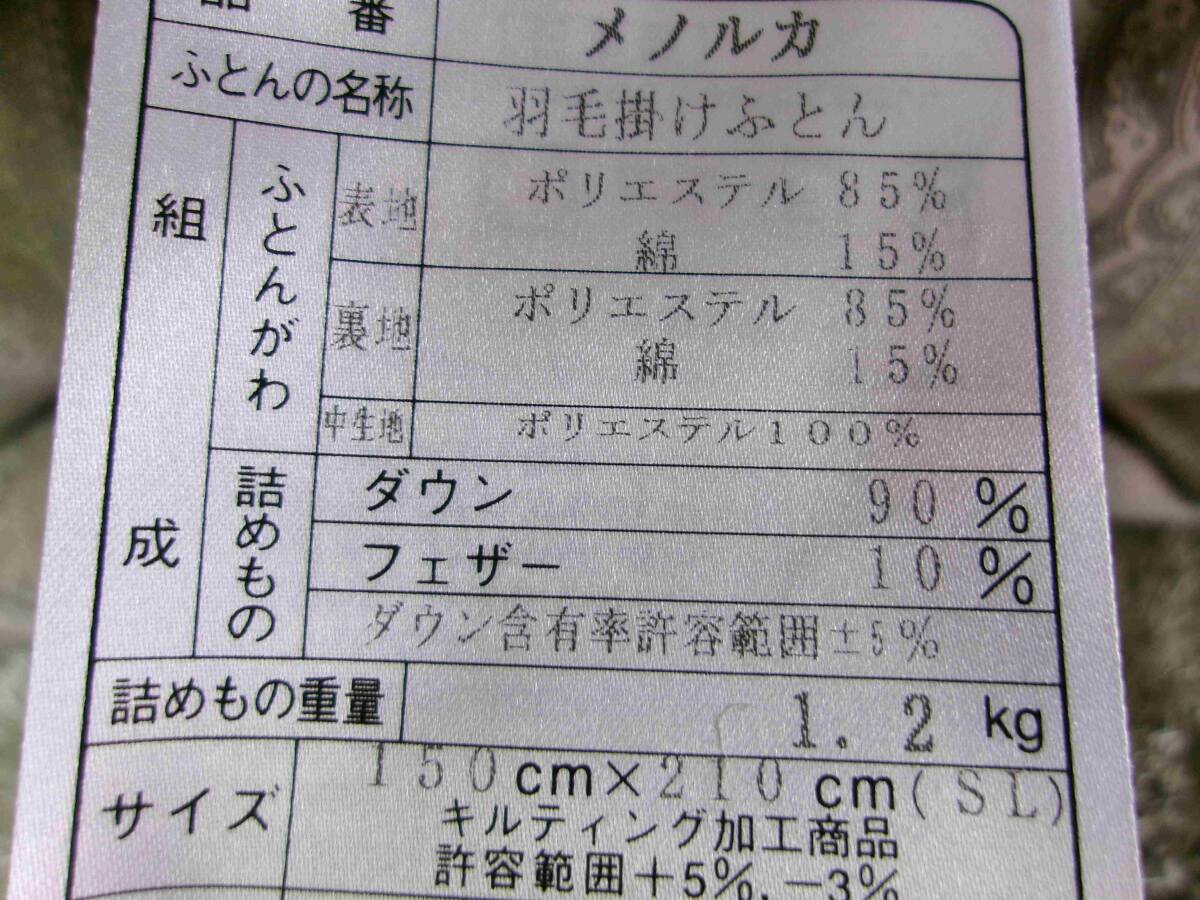 品番 メノルカ
ふとんの名称 羽毛掛けふとん
組成 ふとんがわ 表地 ポリエステル 85%
綿 15%
裏地 ポリエステル 85%
綿 15%
中生地 ポリエステル100%
詰めもの ダウン 90 %
フェザー 10 %
ダウン含有率許容範囲±5%
詰めもの重量 1.2 kg
サイズ 150cm×210cm(SL)
キルティング加工商品
許容範囲+5%,-3%